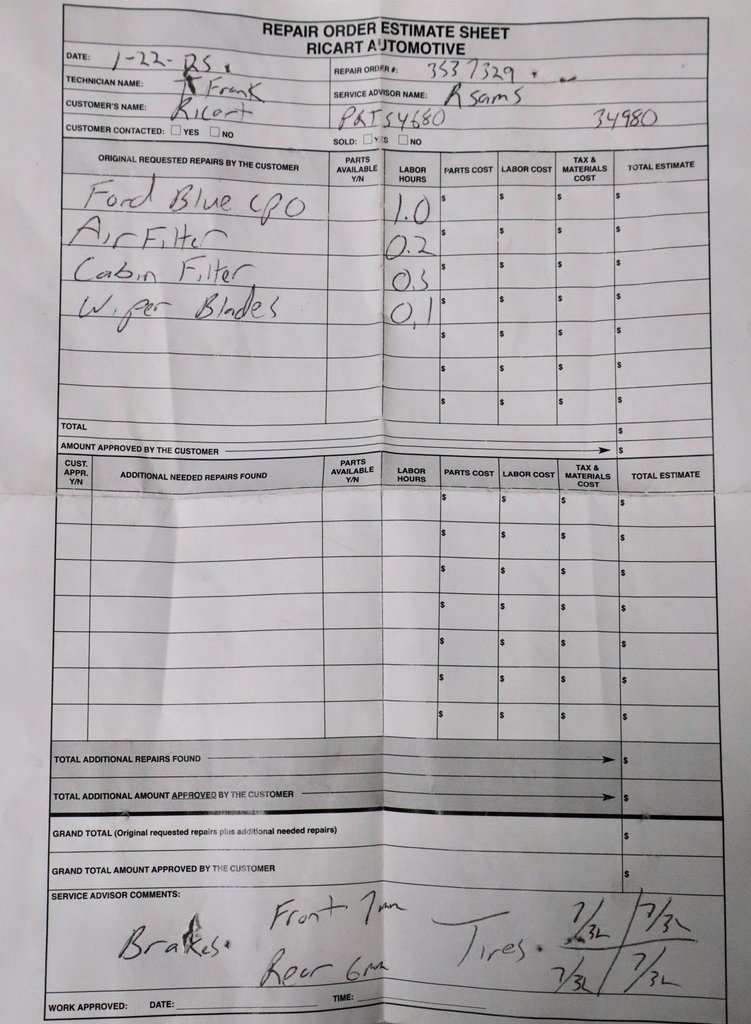 REPAIR ORDER ESTIMATE SHEET
RICART AUTOMOTIVE
DATE: 1-22-25. REPAIR ORDER #: 3537329
TECHNICIAN NAME: T Frank SERVICE ADVISOR NAME: R sams
CUSTOMER'S NAME: Ricart PRTS4680 34980
CUSTOMER CONTACTED: YES NO SOLD: YES NO
ORIGINAL REQUESTED REPAIRS BY THE CUSTOMER PARTS AVAILABLE Y/N LABOR HOURS PARTS COST LABOR COST TAX & MATERIALS COST TOTAL ESTIMATE
Ford Blue CPO 1.0 $ $ $ $
Air Filter 0.2 $ $ $ $
Cabin Filter 0.3 $ $ $ $
Wiper Blades 0.1 $ $ $ $
$ $ $ $
$ $ $ $
$ $ $ $
TOTAL $
AMOUNT APPROVED BY THE CUSTOMER $
CUST. APPR. Y/N ADDITIONAL NEEDED REPAIRS FOUND PARTS AVAILABLE Y/N LABOR HOURS PARTS COST LABOR COST TAX & MATERIALS COST TOTAL ESTIMATE
$ $ $ $
$ $ $ $
$ $ $ $
$ $ $ $
$ $ $ $
$ $ $ $
$ $ $ $
TOTAL ADDITIONAL REPAIRS FOUND $
TOTAL ADDITIONAL AMOUNT APPROVED BY THE CUSTOMER $
GRAND TOTAL (Original requested repairs plus additional needed repairs) $
GRAND TOTAL AMOUNT APPROVED BY THE CUSTOMER $
SERVICE ADVISOR COMMENTS:
Front 7mm 7/32 7/32
Brakes. Tires.
Rear 6mm 7/32 7/32
WORK APPROVED: DATE: TIME: